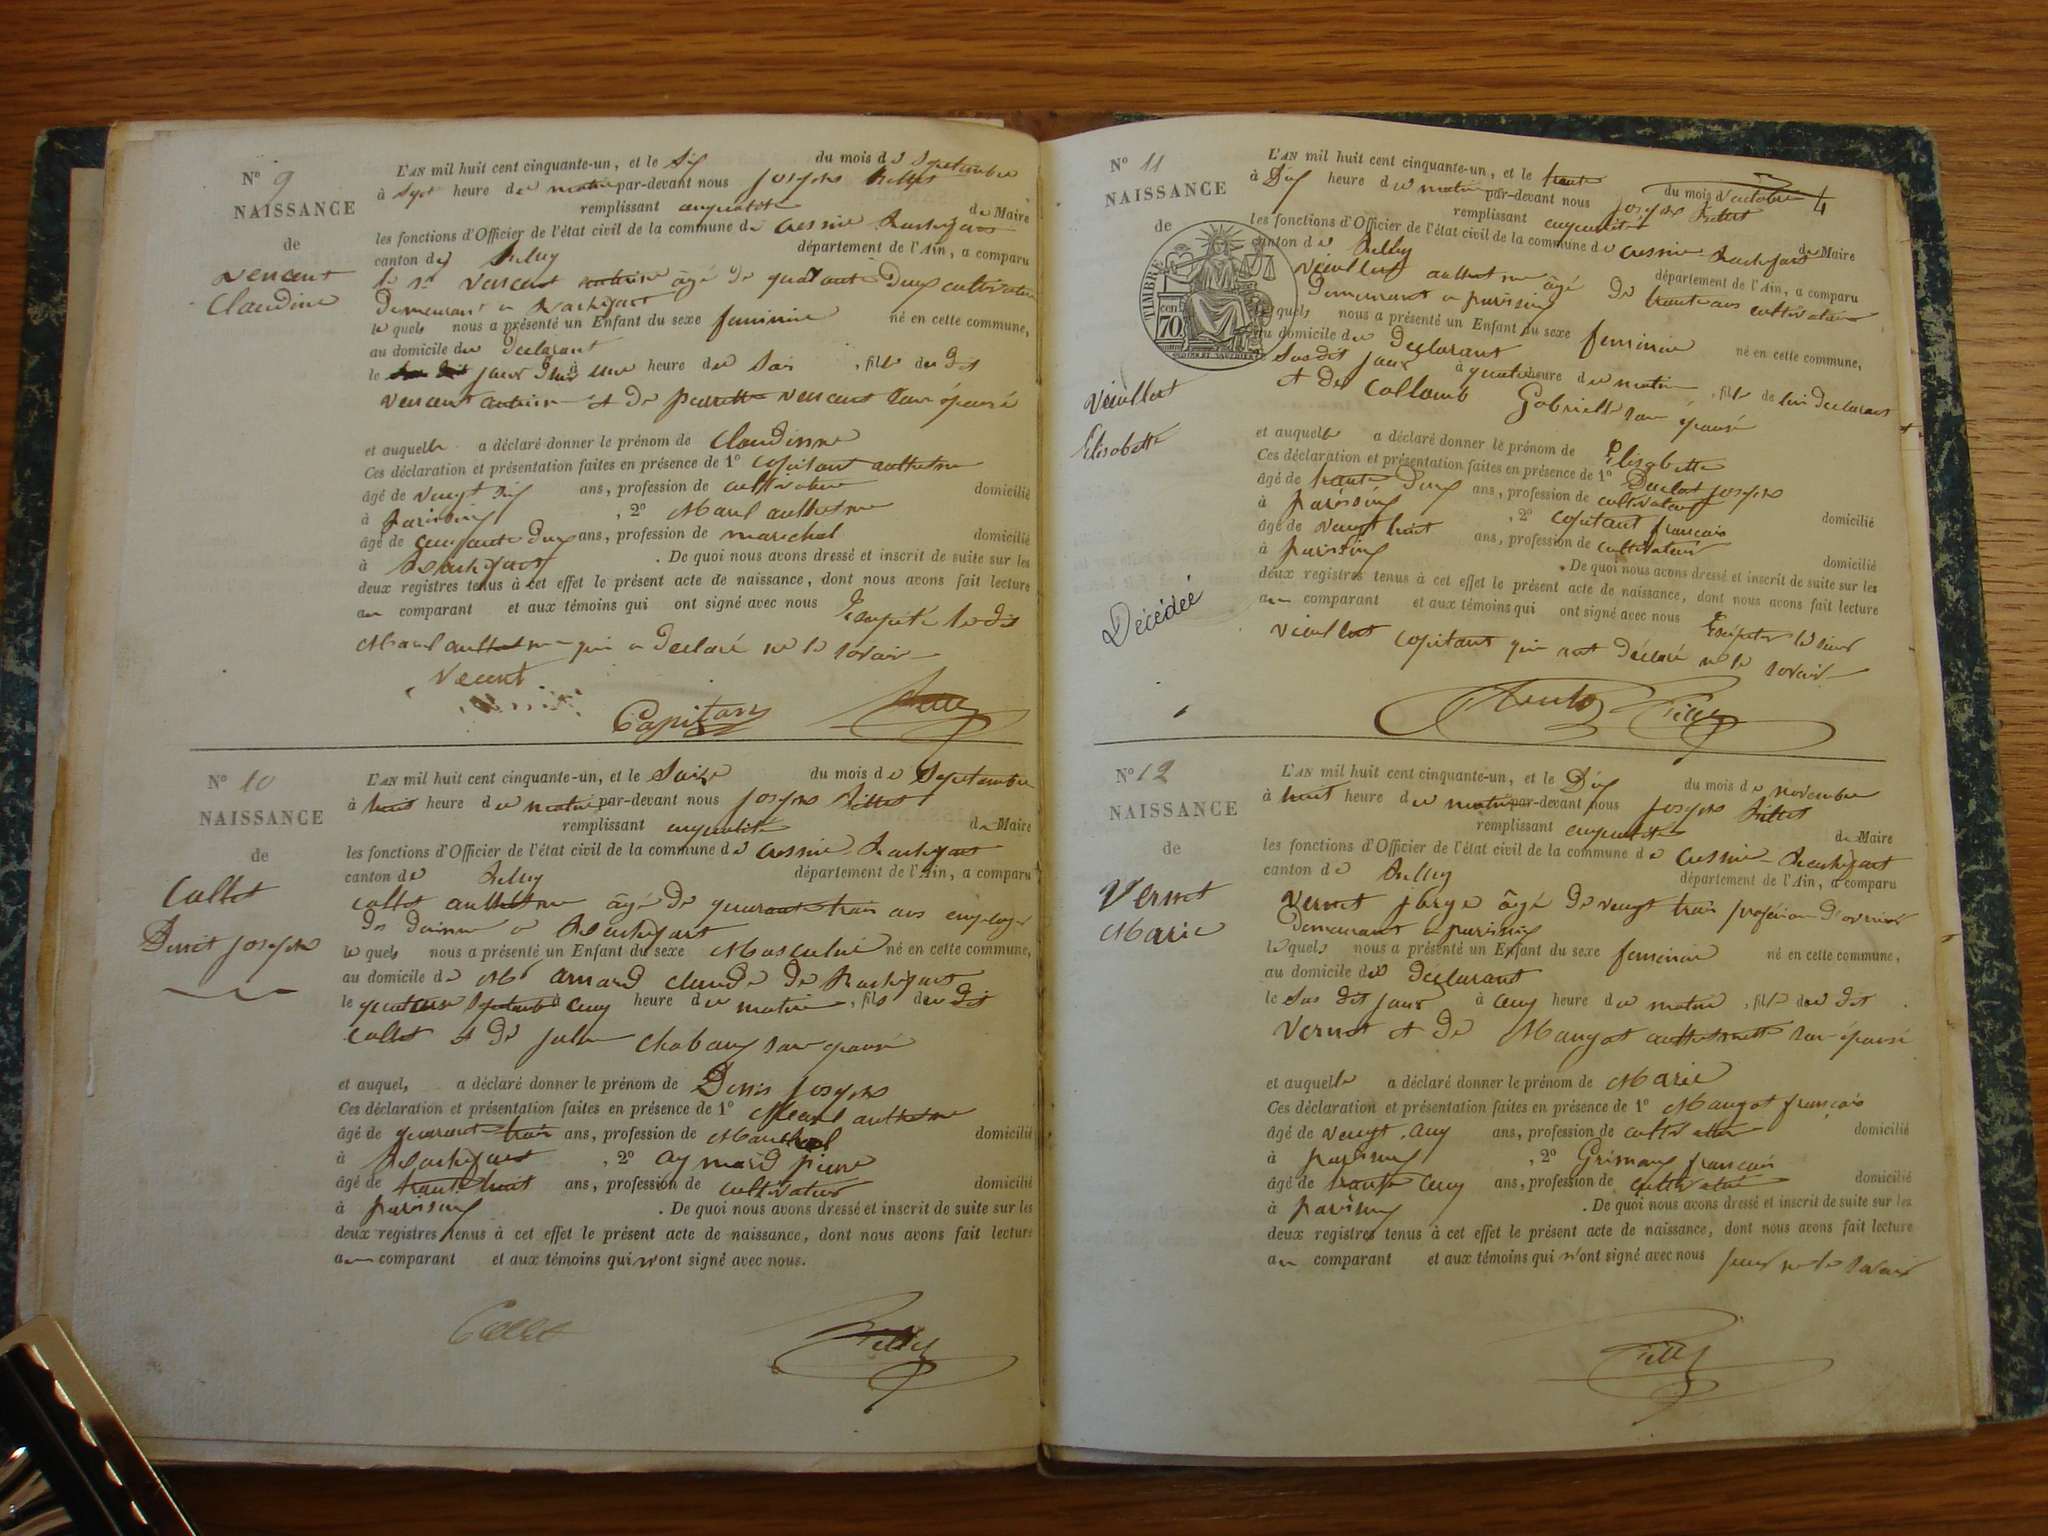 N° 9
NAISSANCE
de
Vencent
Claudine
L'AN mil huit cent cinquante-un, et le Six du mois de Septembre
à Sept heure du matin par-devant nous joseph Billet
remplissant de Maire
les fonctions d'Officier de l'état civil de la commune de Cressin Rochefort
canton de Belley département de l'Ain, a comparu
le Sr Vencent âgé de quarante Deux cultivateur
Demeurant a Rochefort
le quel nous a présenté un Enfant du sexe feminin né en cette commune,
au domicile du Declarant
le jour une heure du Soir , fille du Dit
Vencent et De Vencent Son épouse
et auquelle a déclaré donner le prénom de Claudinne
Ces déclaration et présentation faites en présence de 1° Copitant anthelme
âgé de Vengt Six ans, profession de cultivateur domicilié
à parissieu , 2° anthelme
âgé de cinquante Deux ans, profession de marechal domicilié
à Rochefort . De quoi nous avons dressé et inscrit de suite sur les
deux registres tenus à cet effet le présent acte de naissance, dont nous avons fait lecture
au comparant et aux témoins qui ont signé avec nous Excepté le dit
anthelme qui a declaré ne le Savoir
Vecent
Capitan Billet
N° 10
NAISSANCE
de
Callet
Denit joseph
L'AN mil huit cent cinquante-un, et le Seize du mois de Septembre
à huit heure du matin par-devant nous joseph Billet
remplissant de Maire
les fonctions d'Officier de l'état civil de la commune de Cressin Rochefort
canton de Belley département de l'Ain, a comparu
Callet anthelme âgé de quarante trois ans employé
Des Douanne a Rochefort
le quel nous a présenté un Enfant du sexe Masculin né en cette commune,
au domicile de Mr arnard claude De Rochefort
le quatorze Septembre à Cinq heure du matin , fils du Dit
Callet et De julie Chabouy Son épouse
et auquel, a déclaré donner le prénom de Denis joseph
Ces déclaration et présentation faites en présence de 1° anthelme
âgé de quarante trois ans, profession de Marechal domicilié
à Rochefort , 2° aymard pierre
âgé de trante huit ans, profession de cultivateur domicilié
à parissieu . De quoi nous avons dressé et inscrit de suite sur les
deux registres tenus à cet effet le présent acte de naissance, dont nous avons fait lecture
au comparant et aux témoins qui n'ont signé avec nous.
Callet
Billet
N° 11
NAISSANCE
de
TIMBRE
70 cent
Vieullet
Elisabette
Décédée
L'AN mil huit cent cinquante-un, et le trante du mois d'octobre
à Dix heure du matin par-devant nous joseph Billet
remplissant de Maire
les fonctions d'Officier de l'état civil de la commune de Cressin Rochefort
canton de Belley département de l'Ain, a comparu
Vieullet anthelme âgé De trante ans cultivateur
Demeurant a parissieu
le quel, nous a présenté un Enfant du sexe feminin né en cette commune,
au domicile du Declarant
le Susdit jour à quatre heure du matin , fille de lui Declarant
et De Collomb Gabrielle Son épouse
et auquelle a déclaré donner le prénom de Elisabette
Ces déclaration et présentation faites en présence de 1° joseph
âgé de trante Deux ans, profession de cultivateur domicilié
à parissieu , 2° Copitant françois
âgé de vengt huit ans, profession de cultivateur domicilié
à parissieu . De quoi nous avons dressé et inscrit de suite sur les
deux registres tenus à cet effet le présent acte de naissance, dont nous avons fait lecture
au comparant et aux témoins qui ont signé avec nous Excepter le Sieur
Vieullet Copitant qui ont déclaré ne le Savoir
Billet
N° 12
NAISSANCE
de
Vernet
Marie
L'AN mil huit cent cinquante-un, et le Dix du mois de novembre
à huit heure du matin par-devant nous joseph Billet
remplissant de Maire
les fonctions d'Officier de l'état civil de la commune de Cressin Rochefort
canton de Belley département de l'Ain, a comparu
Vernet âgé De vengt trois profession D'ouvrier
Demeurant a parissieu
le quel, nous a présenté un Enfant du sexe feminin né en cette commune,
au domicile du Declarant
le Sus dit jour à Cinq heure du matin , fille du dit
Vernet et De Maugot anthelmette Son épouse
et auquelle a déclaré donner le prénom de Marie
Ces déclaration et présentation faites en présence de 1° Maugot françois
âgé de vengt Cinq ans, profession de cultivateur domicilié
à parissieu , 2° françois
âgé de trante Cinq ans, profession de cultivateur domicilié
à parissieu . De quoi nous avons dressé et inscrit de suite sur les
deux registres tenus à cet effet le présent acte de naissance, dont nous avons fait lecture
au comparant et aux témoins qui n'ont signé avec nous pour ne le Savoir
Billet